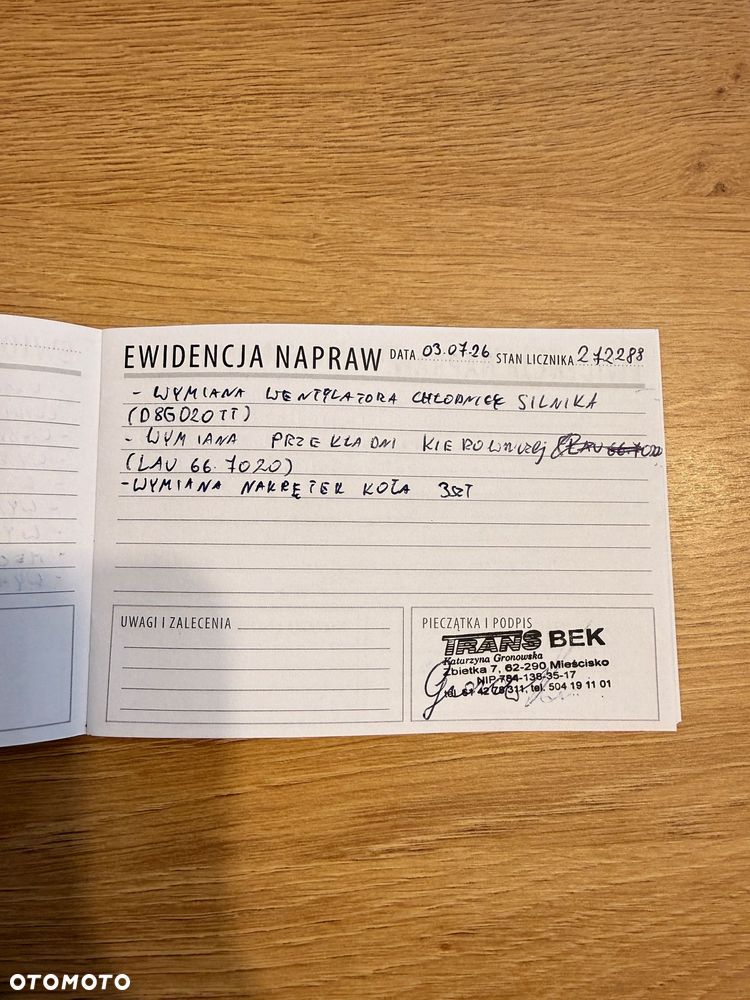 EWIDENCJA NAPRAW DATA 03.07.26 STAN LICZNIKA 212288
- WYMIANA WENTYLATORA CHŁODNICĘ SILNIKA
(D8G020TT)
- WYMIANA PRZEKŁADNI KIEROWNICZEJ
(LAU 66.7020)
- WYMIANA NAKRĘTEK KOŁA 3SZT
UWAGI I ZALECENIA
PIECZĄTKA I PODPIS
TRANS BEK
Katarzyna Gronowska
Zbietka 7, 62-290 Mieścisko
NIP 784-138-35-17
tel. 61 42 78 311, tel. 504 19 11 01
OTOMOTO